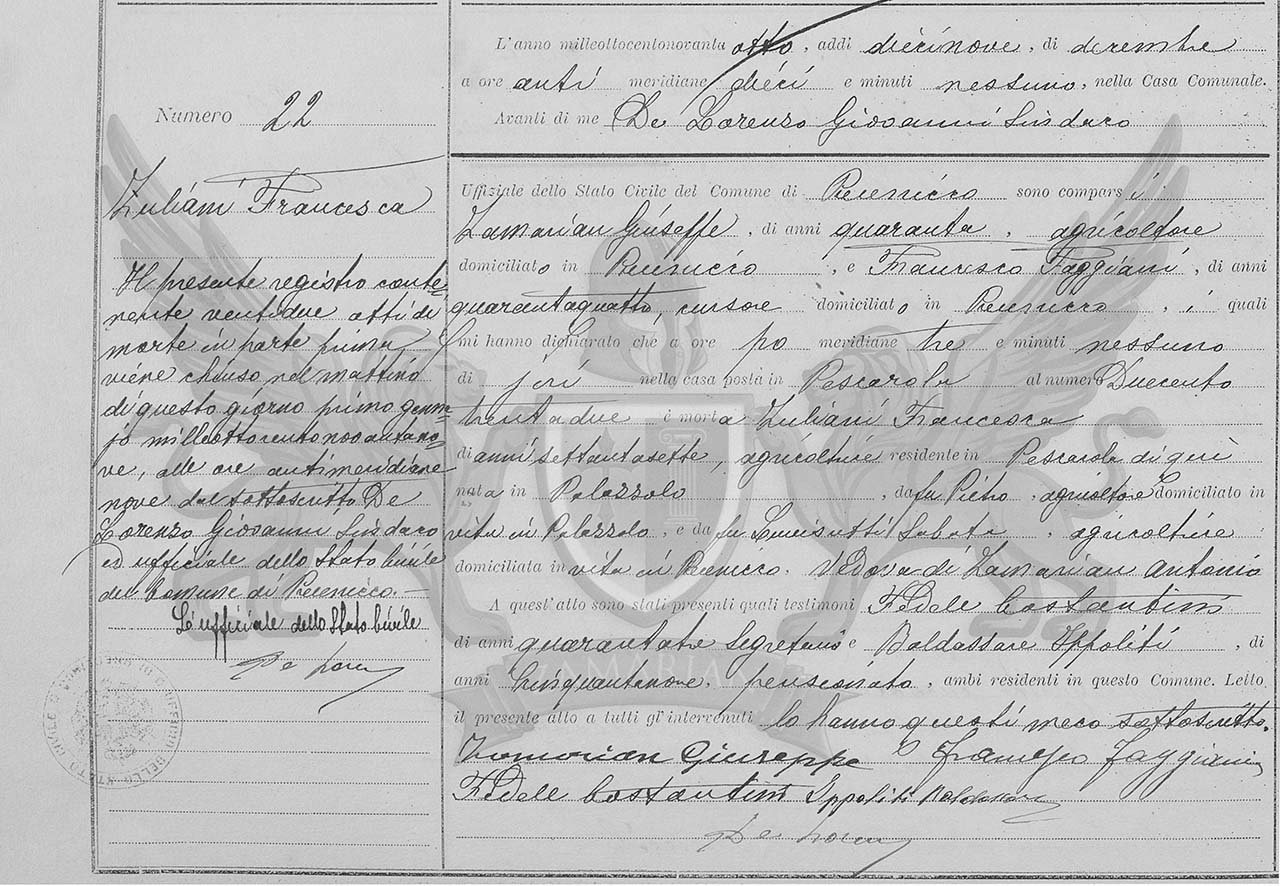 Numero 22
Zuliani Francesca
Il presente registro conte-
nente ventidue atti di
morte in parte prima
viene chiuso nel mattino
di questo giorno primo genna
jo milleottocentonovantano-
ve, alle ore antimeridiane
nove dal sottoscritto De
Lorenzo Giovanni Sindaco
ed ufficiale dello Stato Civile
del Comune di Precenicco.
Lo ufficiale dello Stato Civile
De Loren
L'anno milleottocentonovanta otto, addì diecinove, di decembre
a ore anti meridiane dieci e minuti nessuno, nella Casa Comunale.
Avanti di me De Lorenzo Giovanni Sindaco
Uffiziale dello Stato Civile del Comune di Precenicco sono comparsi
Zamarian Giuseffe, di anni quaranta, agricoltore
domiciliato in Precenicco, e Francesco Faggiani, di anni
quarantaquattro, cursore domiciliato in Precenicco, i quali
mi hanno dichiarato che a ore po meridiane tre e minuti nessuno
di jeri nella casa posta in Pescarola al numero Duecento
trentadue è morta Zuliani Francesca
di anni settantasette, agricoltrice residente in Pescarola di qui
nata in Palazzolo, da fu Pietro, agricoltore domiciliato in
vita in Palazzolo, e da fu Sabata, agricoltrice
domiciliata in vita in Precenicco. Vedova di Zamarian Antonio
A quest'atto sono stati presenti quali testimoni Fedele Costantini
di anni quarantatre segretario e Baldassare Ippoliti, di
anni Cinquantanove, pensionato, ambi residenti in questo Comune. Letto
il presente atto a tutti gl'intervenuti lo hanno questi meco sottoscritto.
Zamarian Giuseppe Francesco Faggiani
Fedele Costantini Ippoliti Baldassare
De Loren
ZAMARIAN